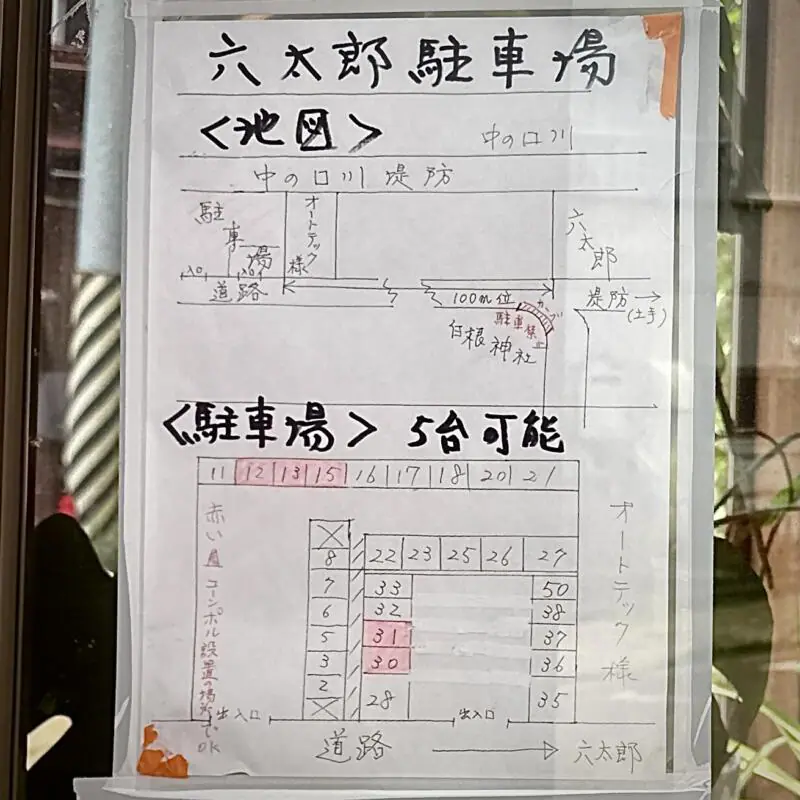 六太郎駐車場
<地図>
中の口川
中の口川堤防
駐車場
オートテック様
六太郎
入口
入口
道路
100m位
カーブ
駐車禁止
白根神社
堤防→
(土手)
<駐車場> 5台可能
11 12 13 15 16 17 18 20 21
赤い コーンポル設置の場所でOK
オートテック様
8 22 23 25 26 27
7 33 50
6 32 38
5 31 37
3 30 36
2 28 35
出入口 出入口
道路 → 六太郎